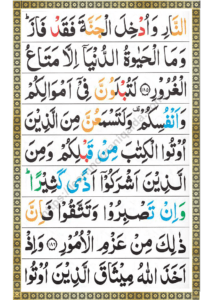 النَّارِ وَاُدْخِلَ الْجَنَّةَ فَقَدْ فَازَ ؕ
وَمَا الْحَيٰوةُ الدُّنْيَاۤ اِلَّا مَتَاعُ
الْغُرُوْرِ ﴿۱۸۵﴾ لَتُبْلَوُنَّ فِيْۤ اَمْوَالِكُمْ
وَاَنْفُسِكُمْ ۫ وَلَتَسْمَعُنَّ مِنَ الَّذِيْنَ
اُوْتُوا الْكِتٰبَ مِنْ قَبْلِكُمْ وَمِنَ
الَّذِيْنَ اَشْرَكُوْۤا اَذًى كَثِيْرًا ؕ
وَاِنْ تَصْبِرُوْا وَتَتَّقُوْا فَاِنَّ
ذٰلِكَ مِنْ عَزْمِ الْاُمُوْرِ ﴿۱۸۶﴾ وَاِذْ
اَخَذَ اللّٰهُ مِيْثَاقَ الَّذِيْنَ اُوْتُوا